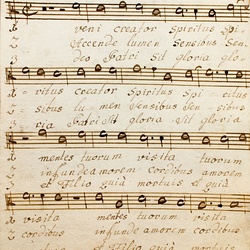 veni creator Spiritus Spi-
Accende lumen Sensibus Sen-
deo Patri Sit gloria glo-
ritus creator Spiritus Spi-ritus
sibus lu-men Sensibus Sen-sibus
ria Patri Sit gloria Sit gloria
mentes tuorum visita tuorum
infunde amorem cordibus amorem
et Filio qui a mortuis et qui a
visita mentes tuorum visita
cordibus infunde amorem cordibus
et Filio qui a mortuis